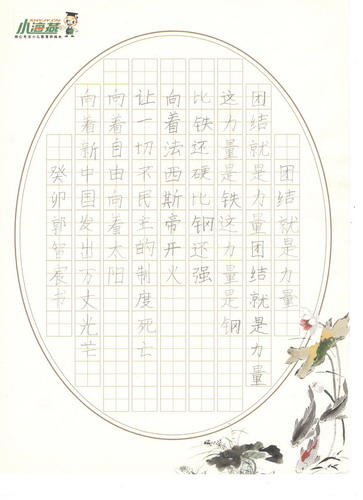 小海燕
团结就是力量
团结就是力量团结就是力量
这力量是铁这力量是钢
比铁还硬比钢还强
向着法西斯帝开火
让一切不民主的制度死亡
向着自由向着太阳
向着新中国发出万丈光芒
癸卯郭智宸书